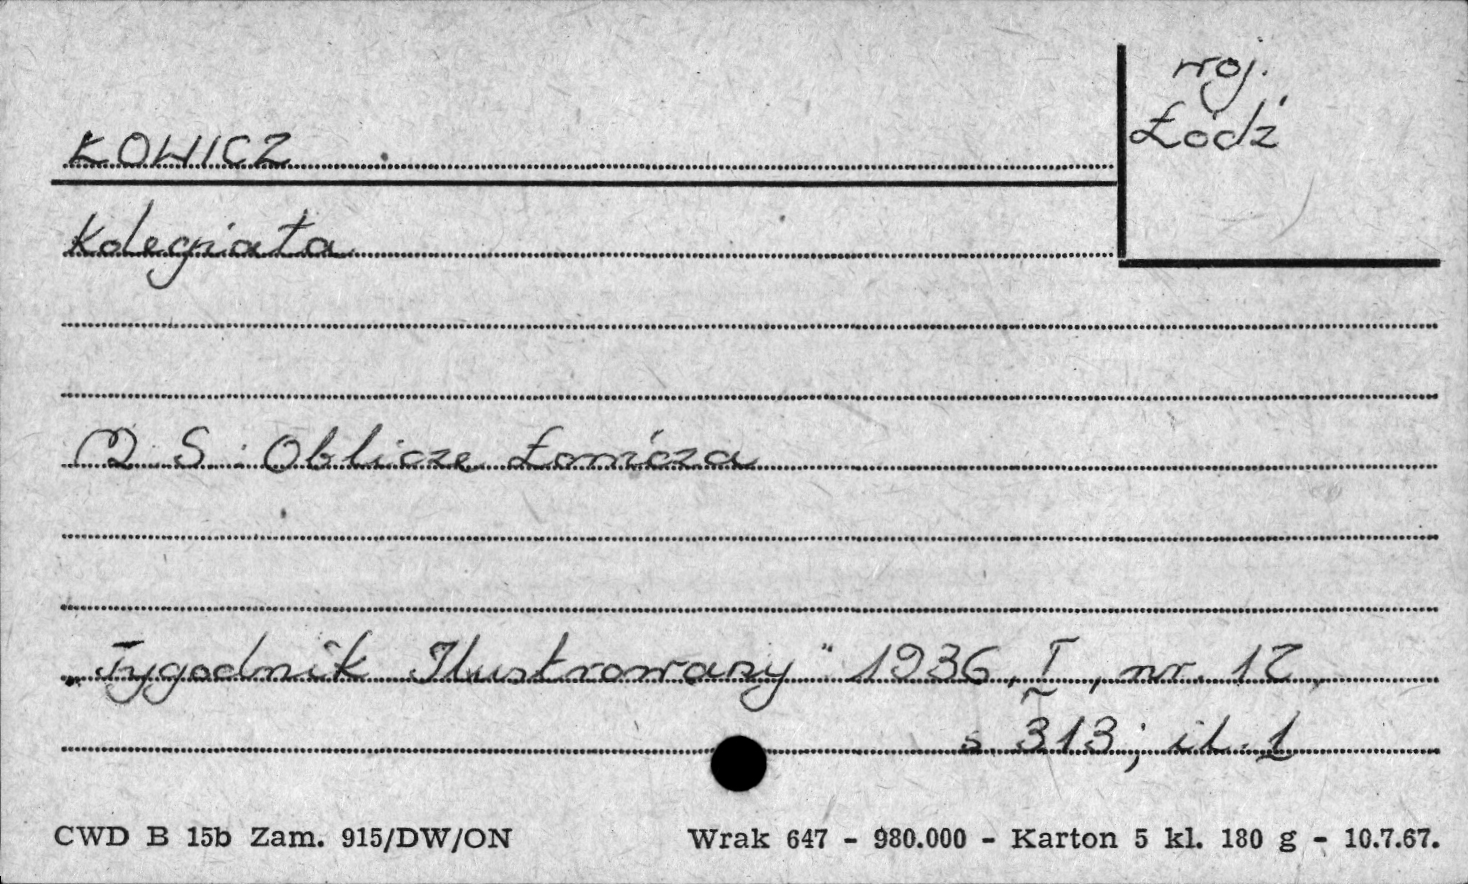 woj.
Łódź
KOWICZ
Kolegiata
M. S.: Oblicze Łowicza
„Tygodnik Ilustrowany" 1936, I, nr. 17,
s. 313; il. 1
CWD B 15b Zam. 915/DW/ON Wrak 647 - 980.000 - Karton 5 kl. 180 g - 10.7.67.